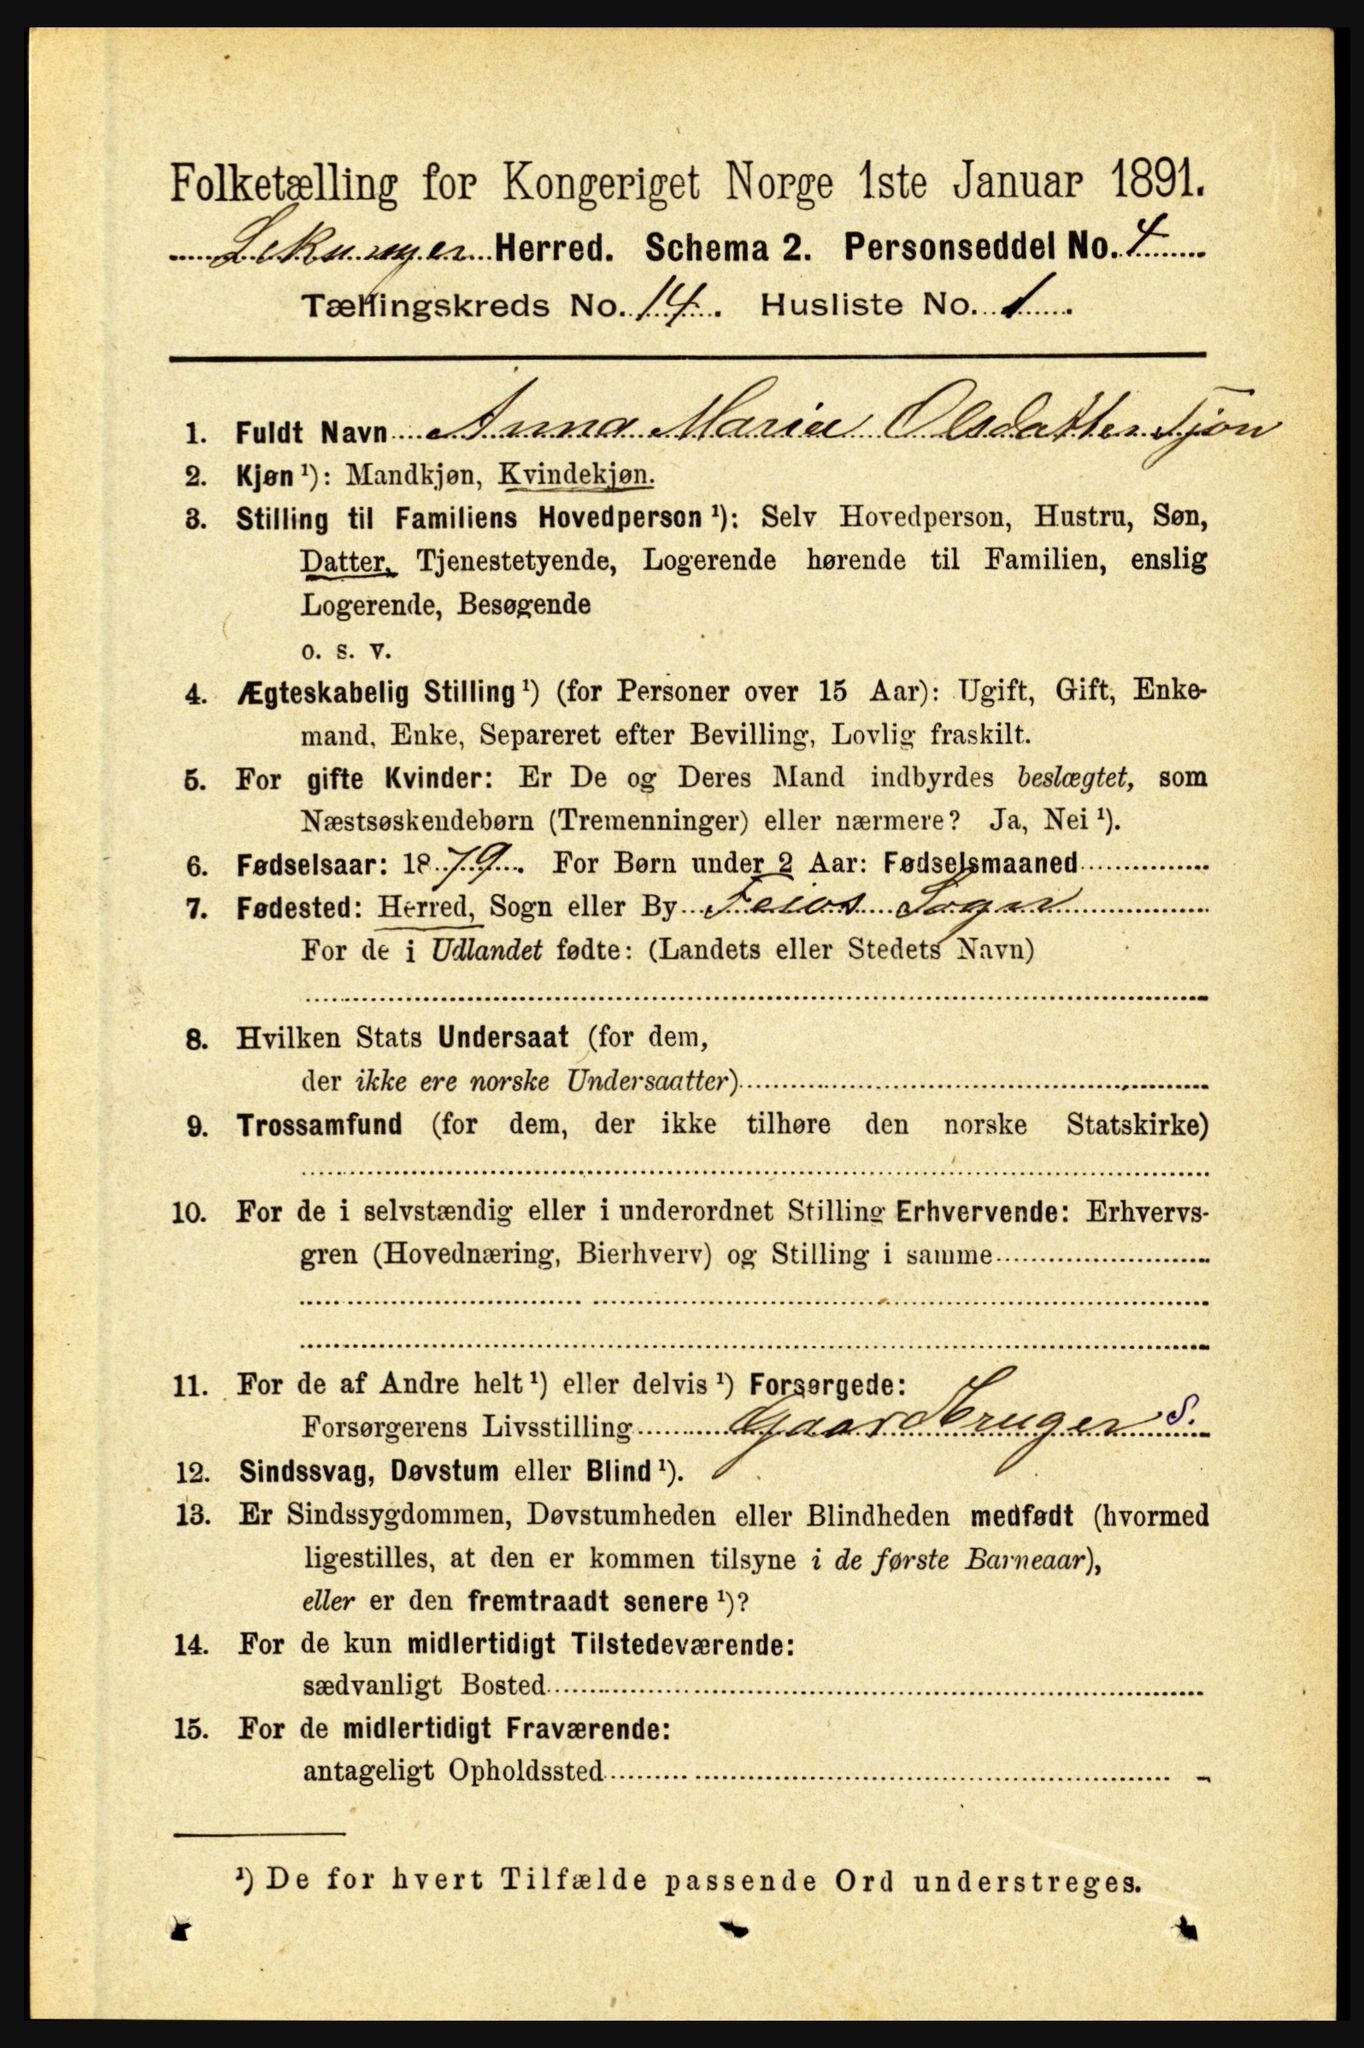 Folketælling for Kongeriget Norge 1ste Januar 1891.
Lekanger Herred. Schema 2. Personseddel No. 4
Tællingskreds No. 14. Husliste No. 1
1. Fuldt Navn Anna Maria Olsdatter Tjøn
2. Kjøn ¹): Mandkjøn, Kvindekjøn.
3. Stilling til Familiens Hovedperson ¹): Selv Hovedperson, Hustru, Søn,
Datter, Tjenestetyende, Logerende hørende til Familien, enslig
Logerende, Besøgende
o. s. v.
4. Ægteskabelig Stilling ¹) (for Personer over 15 Aar): Ugift, Gift, Enke-
mand, Enke, Separeret efter Bevilling, Lovlig fraskilt.
5. For gifte Kvinder: Er De og Deres Mand indbyrdes beslægtet, som
Næstsøskendebørn (Tremenninger) eller nærmere? Ja, Nei ¹).
6. Fødselsaar: 1879. For Børn under 2 Aar: Fødselsmaaned
7. Fødested: Herred, Sogn eller By Feios Sogn
For de i Udlandet fødte: (Landets eller Stedets Navn)
8. Hvilken Stats Undersaat (for dem,
der ikke ere norske Undersaatter)
9. Trossamfund (for dem, der ikke tilhøre den norske Statskirke)
10. For de i selvstændig eller i underordnet Stilling Erhvervende: Erhvervs-
gren (Hovednæring, Bierhverv) og Stilling i samme
11. For de af Andre helt ¹) eller delvis ¹) Forsørgede:
Forsørgerens Livsstilling Gaardbruger S.
12. Sindssvag, Døvstum eller Blind ¹).
13. Er Sindssygdommen, Døvstumheden eller Blindheden medfødt (hvormed
ligestilles, at den er kommen tilsyne i de første Barneaar),
eller er den fremtraadt senere ¹)?
14. For de kun midlertidigt Tilstedeværende:
sædvanligt Bosted
15. For de midlertidigt Fraværende:
antageligt Opholdssted
¹) De for hvert Tilfælde passende Ord understreges.